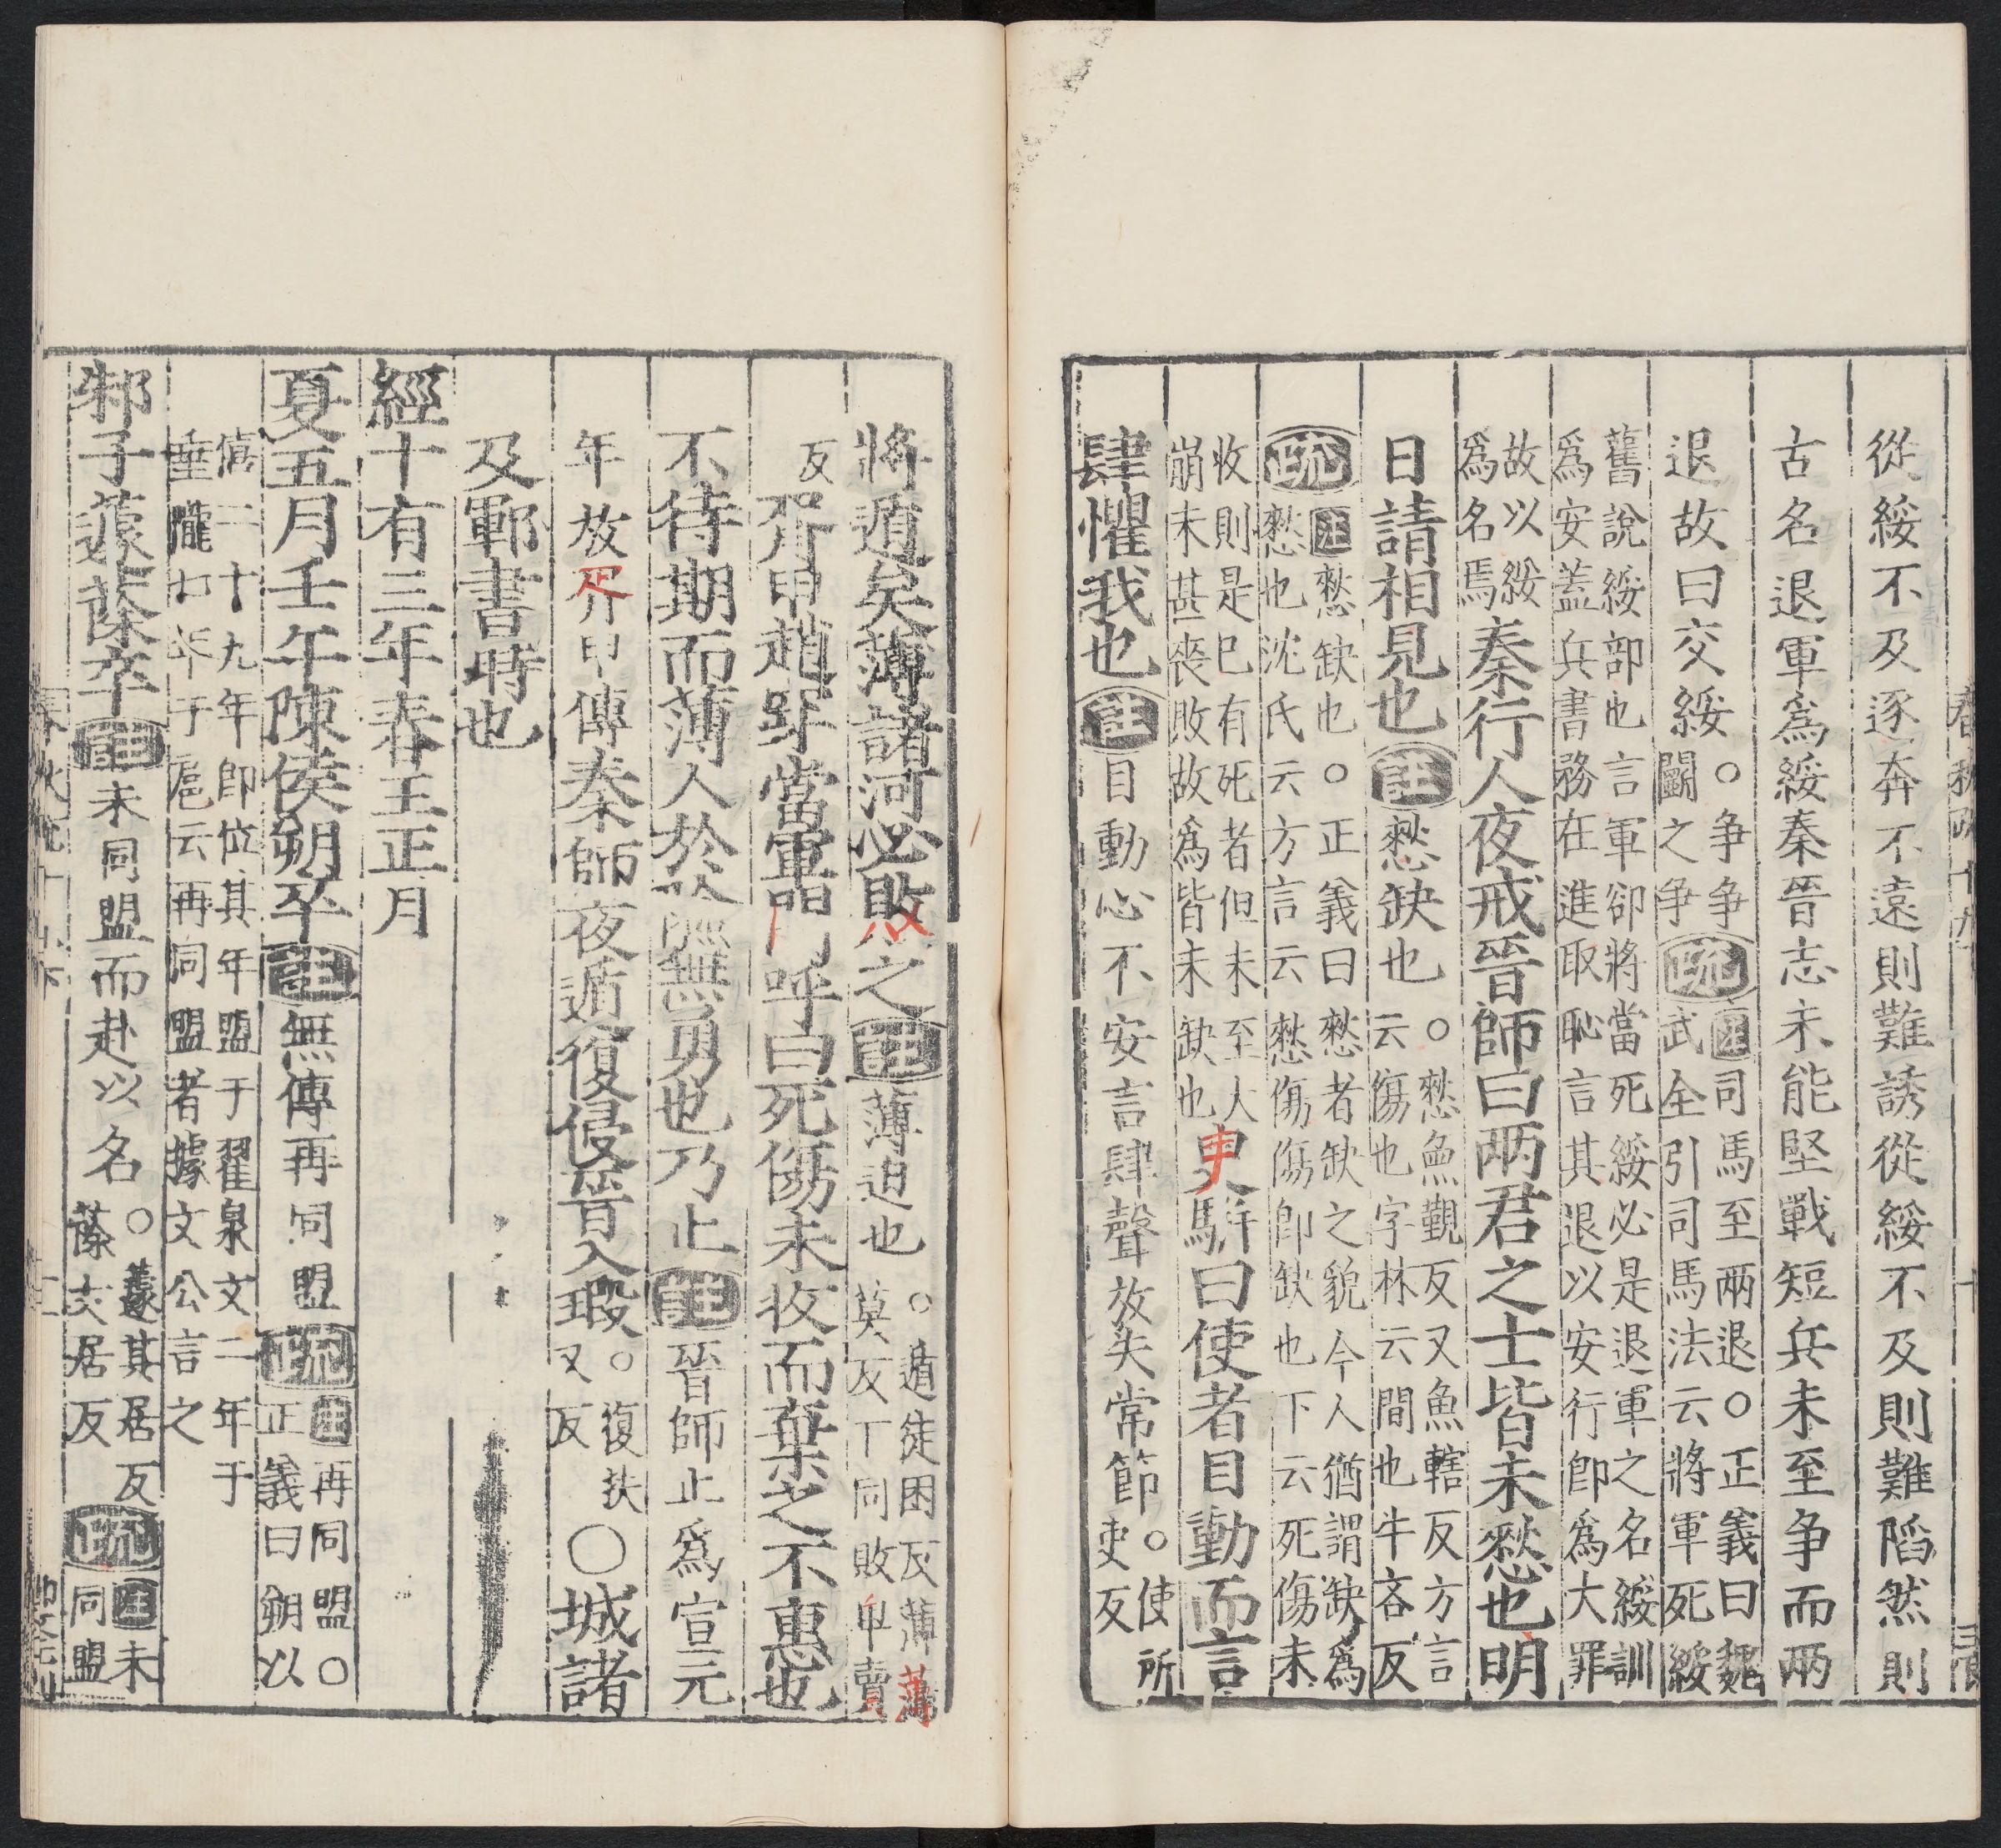 從綏不及逐奔不遠則難誘從綏不及則難陷然則
古名退軍爲綏秦晉志未能堅戰短兵未至争而兩
退故曰交綏○争争
鬬之争疏注司馬至兩退○正義曰魏
武全引司馬法云將軍死綏
舊說綏部也言軍卻將當死綏必是退軍之名綏訓
爲安蓋兵書務在進取恥言其退以安行即爲大罪
故以綏
爲名焉秦行人夜戒晉師曰兩君之士皆未憖也明
日請相見也註憖缺也○憖魚觀反又魚轄反方言
云傷也字林云間也牛吝反
疏注憖缺也○正義曰憖者缺之貌今人猶謂缺爲
憖也沈氏云方言云憖傷傷即缺也下云死傷未
收則是已有死者但未至大
崩未甚喪敗故爲皆未缺也臾駢曰使者目動而言
肆懼我也註目動心不安言肆聲放失常節。使所
吏反
將遁矣薄諸河必敗之註薄迫也○遁徒困反薄薄
莫反丁同敗卑賣
反胥甲趙穿當軍門呼曰死傷未收而棄之不惠也
不待期而薄人於險無勇也乃止註晉師止爲宣元
年放胥甲傳秦師夜遁復侵晉入瑕。復扶
又反○城諸
及鄆書時也
經十有三年春王正月
夏五月壬午陳侯朔卒註無傳再同盟疏注再同盟○
正義曰朔以
僖二十九年即位其年盟于翟泉文二年于
垂隴七年于扈云再同盟者據文公言之
邾子蘧蒢卒註未同盟而赴以名○蘧其居反
蒢丈居反疏注未
同盟